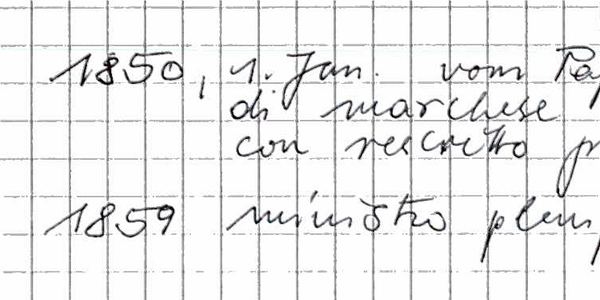 1850, 1. Jan. vom Pap
di marchese
con rescritto p
1859 ministro plenip